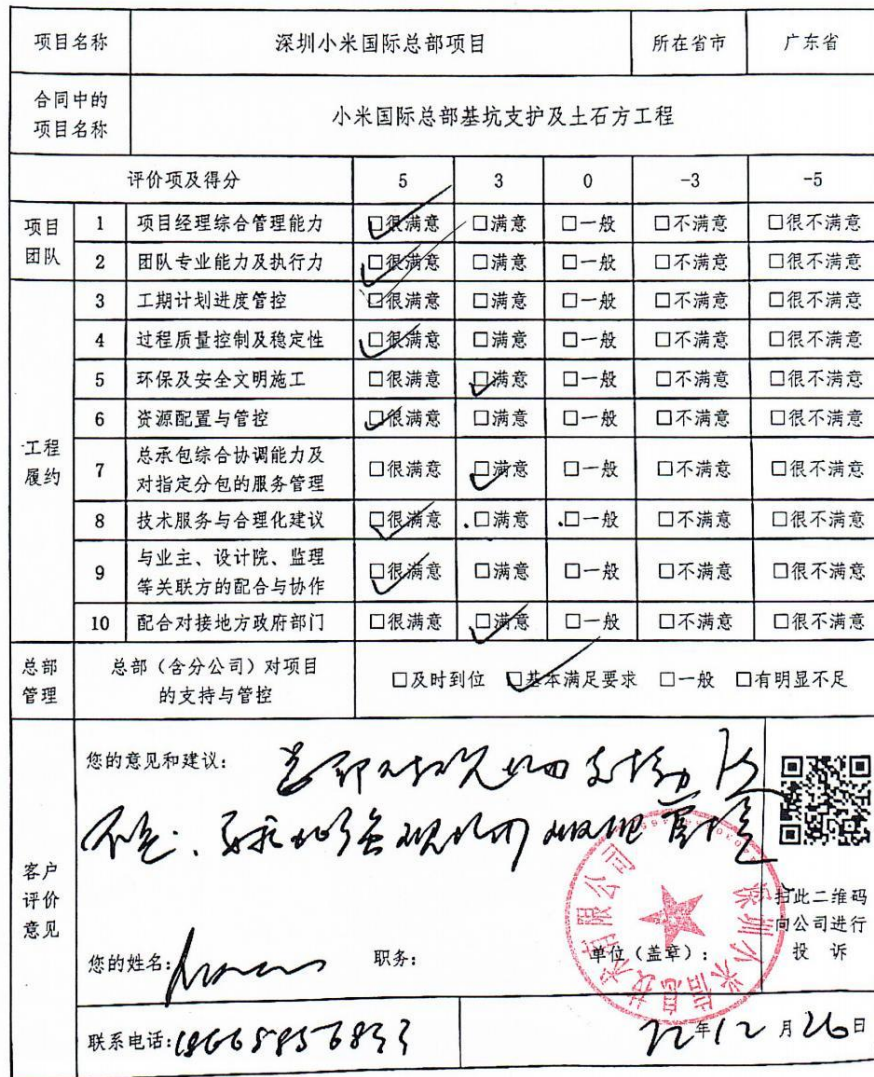 项目名称 深圳小米国际总部项目 所在省市 广东省
合同中的
项目名称 小米国际总部基坑支护及土石方工程
评价项及得分 5 3 0 -3 -5
项目
团队
1 项目经理综合管理能力 □很满意 □满意 □一般 □不满意 □很不满意
2 团队专业能力及执行力 □很满意 □满意 □一般 □不满意 □很不满意
工程
履约
3 工期计划进度管控 □很满意 □满意 □一般 □不满意 □很不满意
4 过程质量控制及稳定性 □很满意 □满意 □一般 □不满意 □很不满意
5 环保及安全文明施工 □很满意 □满意 □一般 □不满意 □很不满意
6 资源配置与管控 □很满意 □满意 □一般 □不满意 □很不满意
7 总承包综合协调能力及
对指定分包的服务管理 □很满意 □满意 □一般 □不满意 □很不满意
8 技术服务与合理化建议 □很满意 □满意 □一般 □不满意 □很不满意
9 与业主、设计院、监理
等关联方的配合与协作 □很满意 □满意 □一般 □不满意 □很不满意
10 配合对接地方政府部门 □很满意 □满意 □一般 □不满意 □很不满意
总部
管理
总部（含分公司）对项目
的支持与管控
□及时到位 □基本满足要求 □一般 □有明显不足
客户
评价
意见
您的意见和建议：
总部对
您的姓名： 职务： 单位（盖章）：
深圳小米信息技术有限公司
扫此二维码
向公司进行
投 诉
联系电话： 22年12月26日